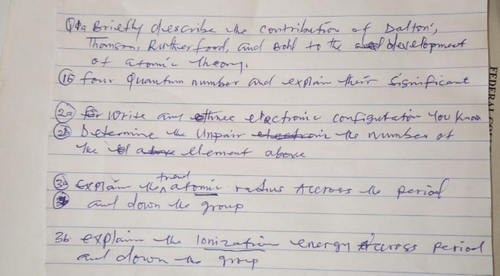 Q1a Briefly describe the contribution of Dalton's,
Thomson, Rutherford, and Bohl to the development
of atomic theory.
1b four Quantum number and explain their Significant
2a Write any three electronic configuration You know
2b Determine the Unpair in the number of
the element above
3a explain the trend atomic radius Accross the period
and down the group
3b explain the Ionization energy Across period
and down the group
FEDERAL